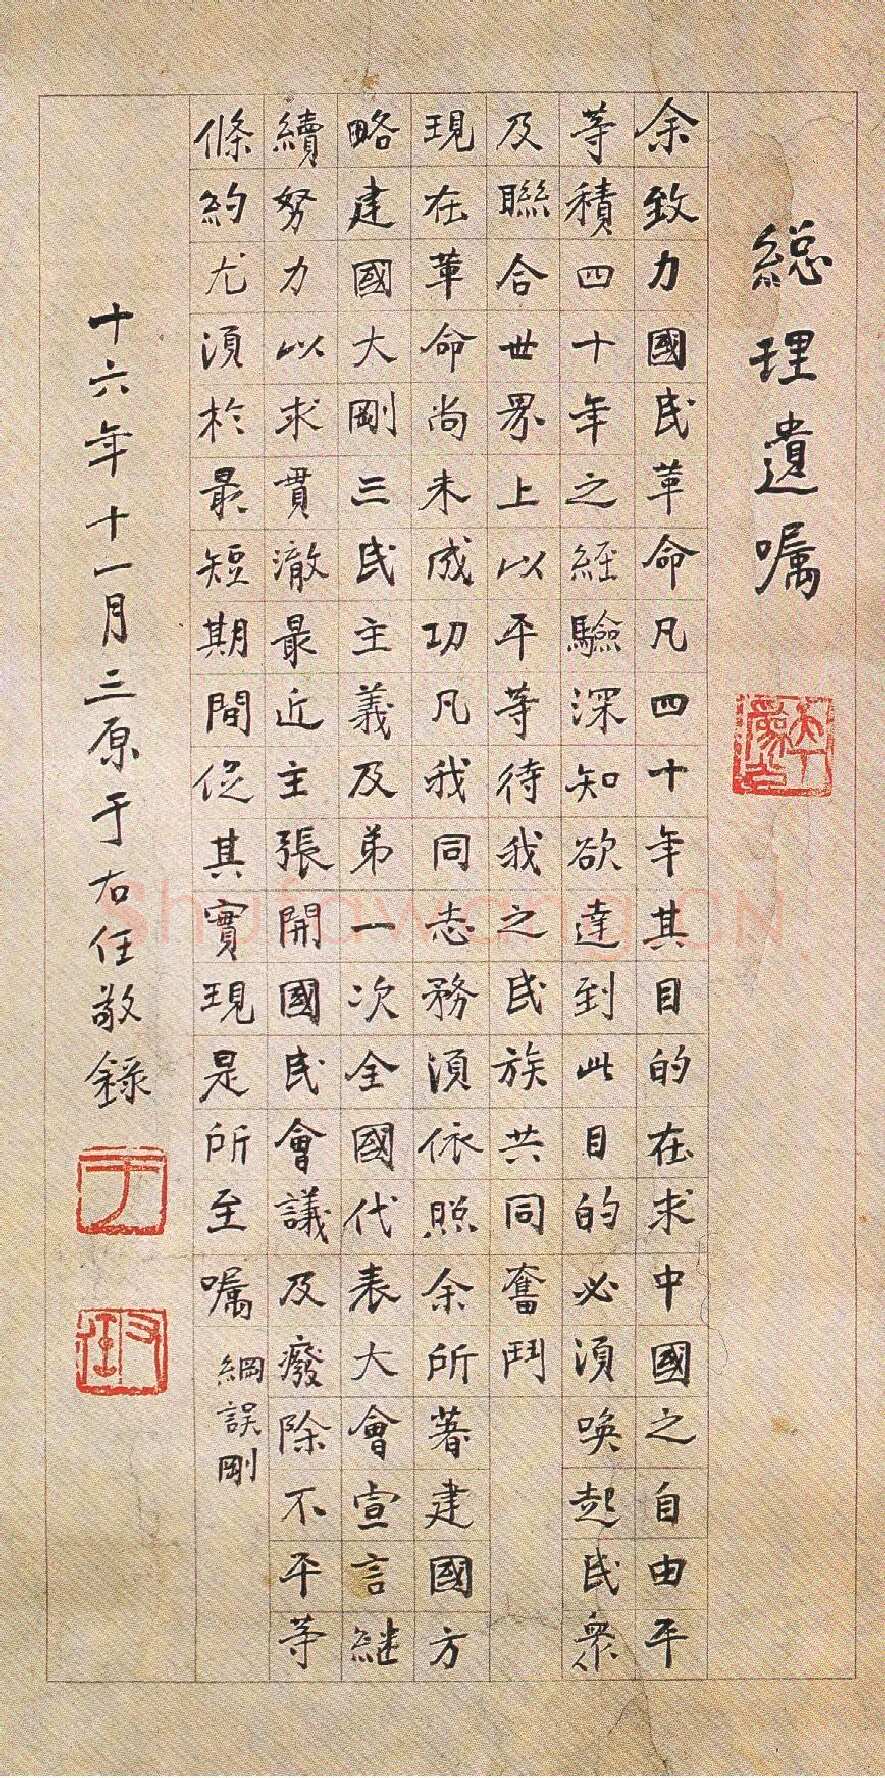 緫理遺嘱
余致力國民革命凡四十年其目的在求中國之自由平
等積四十年之經驗深知欲達到此目的必須喚起民衆
及聯合世界上以平等待我之民族共同奮鬥
現在革命尚未成功凡我同志務須依照余所著建國方
略建國大剛三民主義及弟一次全國代表大會宣言継
續努力以求貫澈最近主張開國民會議及廢除不平等
條約尤須於最短期間促其實現是所至嘱
綱誤剛
十六年十一月三原于右任敬錄
于
右任
Shufawang.CN